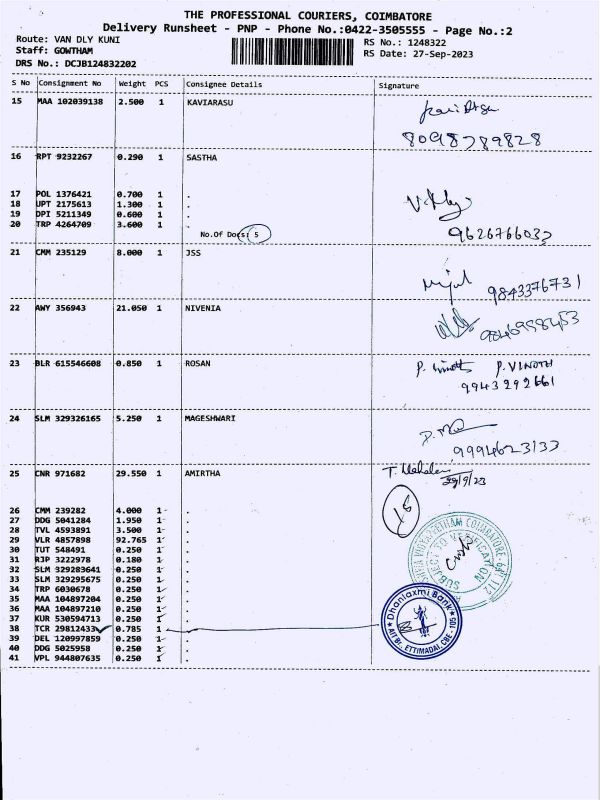 THE PROFESSIONAL COURIERS, COIMBATORE
Delivery Runsheet - PNP - Phone No.:0422-3505555 - Page No.:2
Route: VAN DLY KUNI
Staff: GOWTHAM
DRS No.: DCJB124832202
RS No.: 1248322
RS Date: 27-Sep-2023
S No Consignment No Weight PCS Consignee Details Signature
15 MAA 102039138 2.500 1 KAVIARASU
8098789828
16 RPT 9232267 0.290 1 SASTHA
17 POL 1376421 0.700 1 .
18 UPT 2175613 1.300 1 .
19 DPI 5211349 0.600 1 .
20 TRP 4264709 3.600 1 .
No.Of Docs: 5
9626766032
21 CMM 235129 8.000 1 JSS
9843376731
22 AWY 356943 21.050 1 NIVENIA
9846998453
23 BLR 615546608 0.850 1 ROSAN
P. VINOTH
9943292661
24 SLM 329326165 5.250 1 MAGESHWARI
9994623133
25 CNR 971682 29.550 1 AMIRTHA
29/9/23
18
26 CMM 239282 4.000 1 .
27 DDG 5041284 1.950 1 .
28 TVL 4593891 3.500 1 .
29 VLR 4857898 92.765 1 .
30 TUT 548491 0.250 1 .
31 RJP 3222978 0.180 1 .
32 SLM 329283641 0.250 1 .
33 SLM 329295675 0.250 1 .
34 TRP 6030678 0.250 1 .
35 MAA 104897204 0.250 1 .
36 MAA 104897210 0.250 1 .
37 KUR 530594713 0.250 1 .
38 TCR 29812433 0.785 1 .
39 DEL 120997859 0.250 1 .
40 DDG 5025958 0.250 1 .
41 VPL 944807635 0.250 1 .
VIDYAPEETHAM COIMBATORE - 641 112
SUBJECT TO VERIFICATION
Dhanlaxmi Bank
AIT Br. ETTIMADAI, CBE - 105